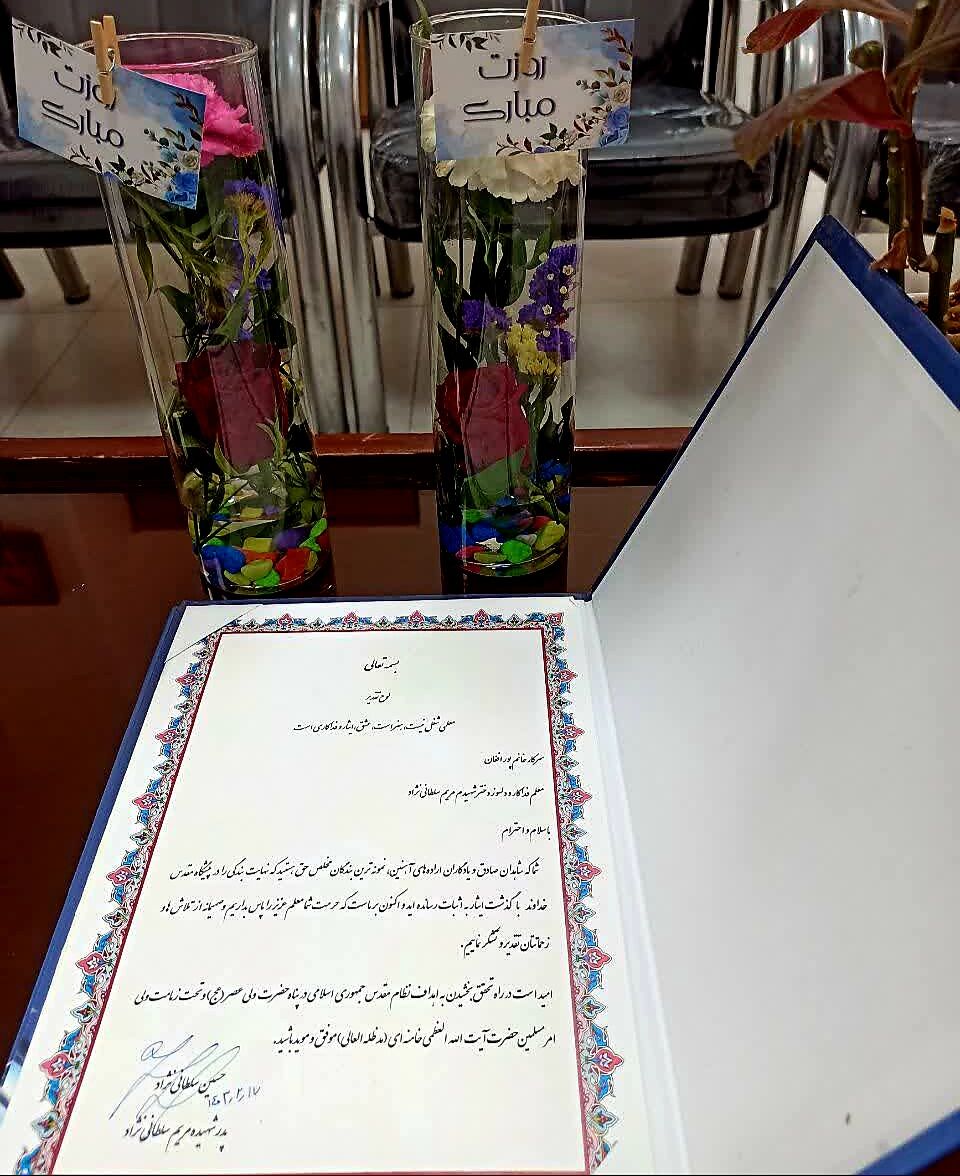 روزت
مبارک
روزت
مبارک
بسمه تعالی
لوح تقدیر
معلمی شغل نیست، هنر است، عشق، ایثار و فداکاری است
سرکار خانم پور افغان
معلم فداکار و دلسوز دخترشهیدم مریم سلطانی نژاد
باسلام و احترام
شما که شاهدان صادق و یادگاران اراده های آهنین، نمونه ترین بندگان مخلص حق هستید که نهایت بندگی را در پیشگاه مقدس
خداوند با گذشت ایثار به اثبات رسانده اید و اکنون بر ماست که حرمت شما معلم عزیز را پاس بداریم و صمیمانه از تلاش ها و
زحماتتان تقدیر و تشکر نماییم.
امید است در راه تحقق بخشیدن به اهداف نظام مقدس جمهوری اسلامی در پناه حضرت ولی عصر (عج) و تحت زعامت ولی
امر مسلمین حضرت آیت الله العظمی خامنه ای (مدظله العالی) موفق و موید باشید.
حسین سلطانی نژاد
۱۴۰۳,۲,۱۷
پدر شهیده مریم سلطانی نژاد